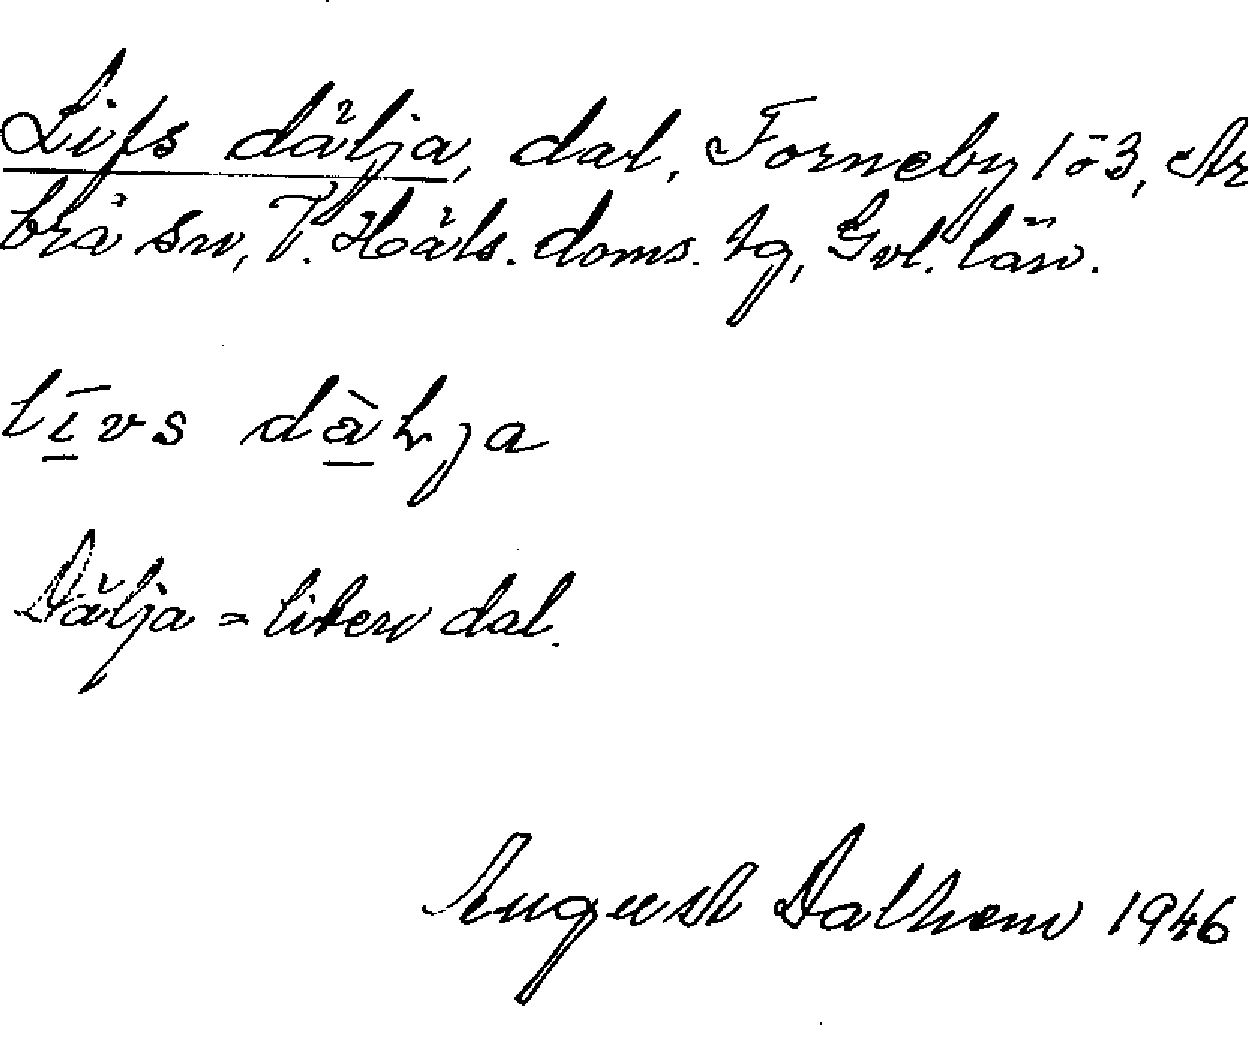 Lifs dålja, dal, Forneby 1ö3, Ar
brå sn, V. Häls. doms. tg, Gvl. län.
līvs dàlja
Dålja = liten dal.
August Dalhem 1946